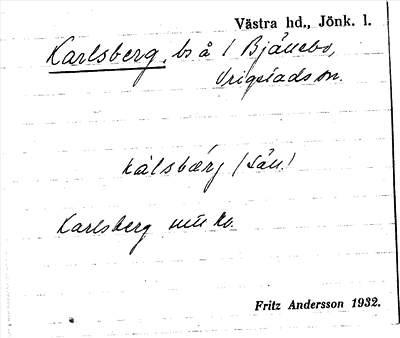 Västra hd., Jönk. l.
Karlsberg, bs å 1 Bjällebo,
Vrigstads sn.
kálsbærj (Säll.)
Karlsberg
Fritz Andersson 1932.